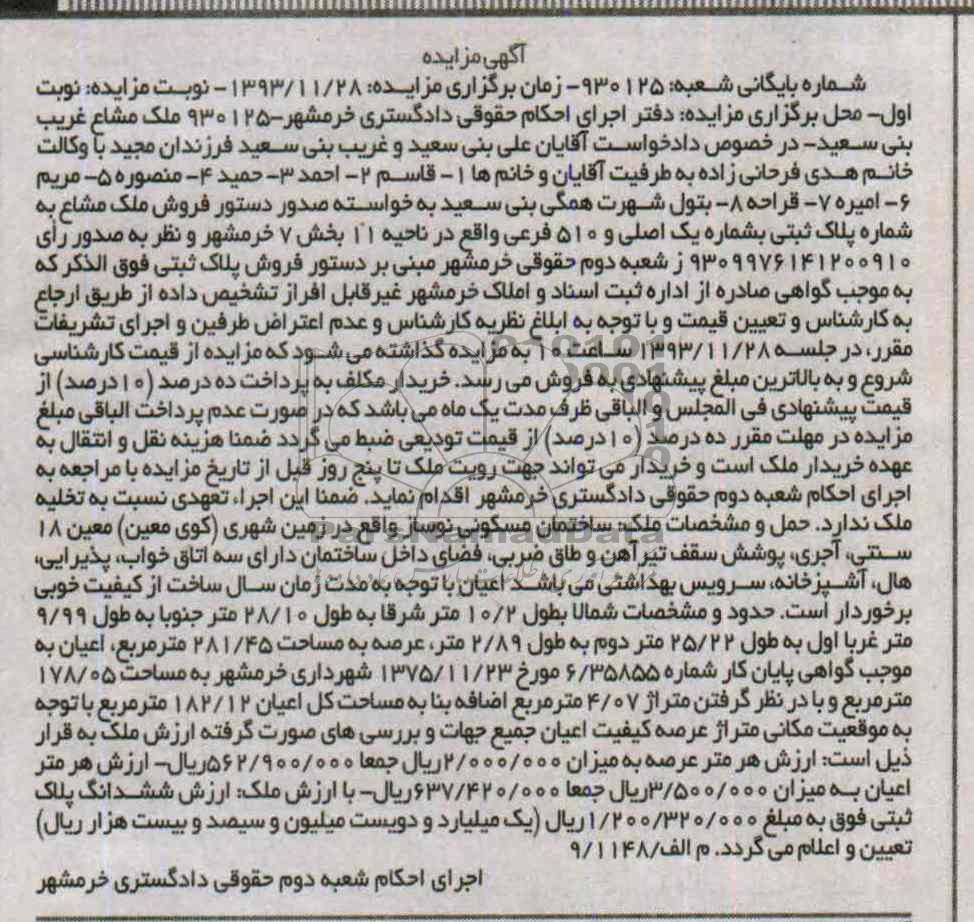 آگهی مزایده
شماره بایگانی شعبه: ۹۳۰۱۲۵- زمان برگزاری مزایده: ۱۳۹۳/۱۱/۲۸- نوبت مزایده: نوبت
اول- محل برگزاری مزایده: دفتر اجرای احکام حقوقی دادگستری خرمشهر-۹۳۰۱۲۵ ملک مشاع غریب
بنی سعید- در خصوص دادخواست آقایان علی بنی سعید و غریب بنی سعید فرزندان مجید با وکالت
خانم هدی فرحانی زاده به طرفیت آقایان و خانم ها ۱- قاسم ۲- احمد ۳- حمید ۴- منصوره ۵- مریم
۶- امیره ۷- قراحه ۸- بتول شهرت همگی بنی سعید به خواسته صدور دستور فروش ملک مشاع به
شماره پلاک ثبتی بشماره یک اصلی و ۵۱۰ فرعی واقع در ناحیه ۱۱ بخش ۷ خرمشهر و نظر به صدور رأی
۹۳۰۹۹۷۶۱۴۱۲۰۰۹۱۰ ز شعبه دوم حقوقی خرمشهر مبنی بر دستور فروش پلاک ثبتی فوق الذکر که
به موجب گواهی صادره از اداره ثبت اسناد و املاک خرمشهر غیرقابل افراز تشخیص داده از طریق ارجاع
به کارشناس و تعیین قیمت و با توجه به ابلاغ نظریه کارشناس و عدم اعتراض طرفین و اجرای تشریفات
مقرر، در جلسه ۱۳۹۳/۱۱/۲۸ ساعت ۱۰ به مزایده گذاشته می شود که مزایده از قیمت کارشناسی
شروع و به بالاترین مبلغ پیشنهادی به فروش می رسد. خریدار مکلف به پرداخت ده درصد (۱۰درصد) از
قیمت پیشنهادی فی المجلس و الباقی ظرف مدت یک ماه می باشد که در صورت عدم پرداخت الباقی مبلغ
مزایده در مهلت مقرر ده درصد (۱۰درصد) از قیمت تودیعی ضبط می گردد ضمنا هزینه نقل و انتقال به
عهده خریدار ملک است و خریدار می تواند جهت رویت ملک تا پنج روز قبل از تاریخ مزایده با مراجعه به
اجرای احکام شعبه دوم حقوقی دادگستری خرمشهر اقدام نماید. ضمنا این اجرا، تعهدی نسبت به تخلیه
ملک ندارد. حمل و مشخصات ملک: ساختمان مسکونی نوساز واقع در زمین شهری (کوی معین) معین ۱۸
سنتی، آجری، پوشش سقف تیرآهن و طاق ضربی، فضای داخل ساختمان دارای سه اتاق خواب، پذیرایی،
هال، آشپزخانه، سرویس بهداشتی می باشد اعیان با توجه به مدت زمان سال ساخت از کیفیت خوبی
برخوردار است. حدود و مشخصات شمالا بطول ۱۰/۲ متر شرقا به طول ۲۸/۱۰ متر جنوبا به طول ۹/۹۹
متر غربا اول به طول ۲۵/۲۲ متر دوم به طول ۲/۸۹ متر، عرصه به مساحت ۲۸۱/۴۵ مترمربع، اعیان به
موجب گواهی پایان کار شماره ۶/۳۵۸۵۵ مورخ ۱۳۷۵/۱۱/۲۳ شهرداری خرمشهر به مساحت ۱۷۸/۰۵
مترمربع و با در نظر گرفتن متراژ ۴/۰۷ مترمربع اضافه بنا به مساحت کل اعیان ۱۸۲/۱۲ مترمربع با توجه
به موقعیت مکانی متراژ عرصه کیفیت اعیان جمیع جهات و بررسی های صورت گرفته ارزش ملک به قرار
ذیل است: ارزش هر متر عرصه به میزان ۲/۰۰۰/۰۰۰ریال جمعا ۵۶۲/۹۰۰/۰۰۰ریال- ارزش هر متر
اعیان به میزان ۳/۵۰۰/۰۰۰ریال جمعا ۶۳۷/۴۲۰/۰۰۰ریال- با ارزش ملک: ارزش ششدانگ پلاک
ثبتی فوق به مبلغ ۱/۲۰۰/۳۲۰/۰۰۰ریال (یک میلیارد و دویست میلیون و سیصد و بیست هزار ریال)
تعیین و اعلام می گردد. م الف/۹/۱۱۴۸
اجرای احکام شعبه دوم حقوقی دادگستری خرمشهر
ParsNamadData